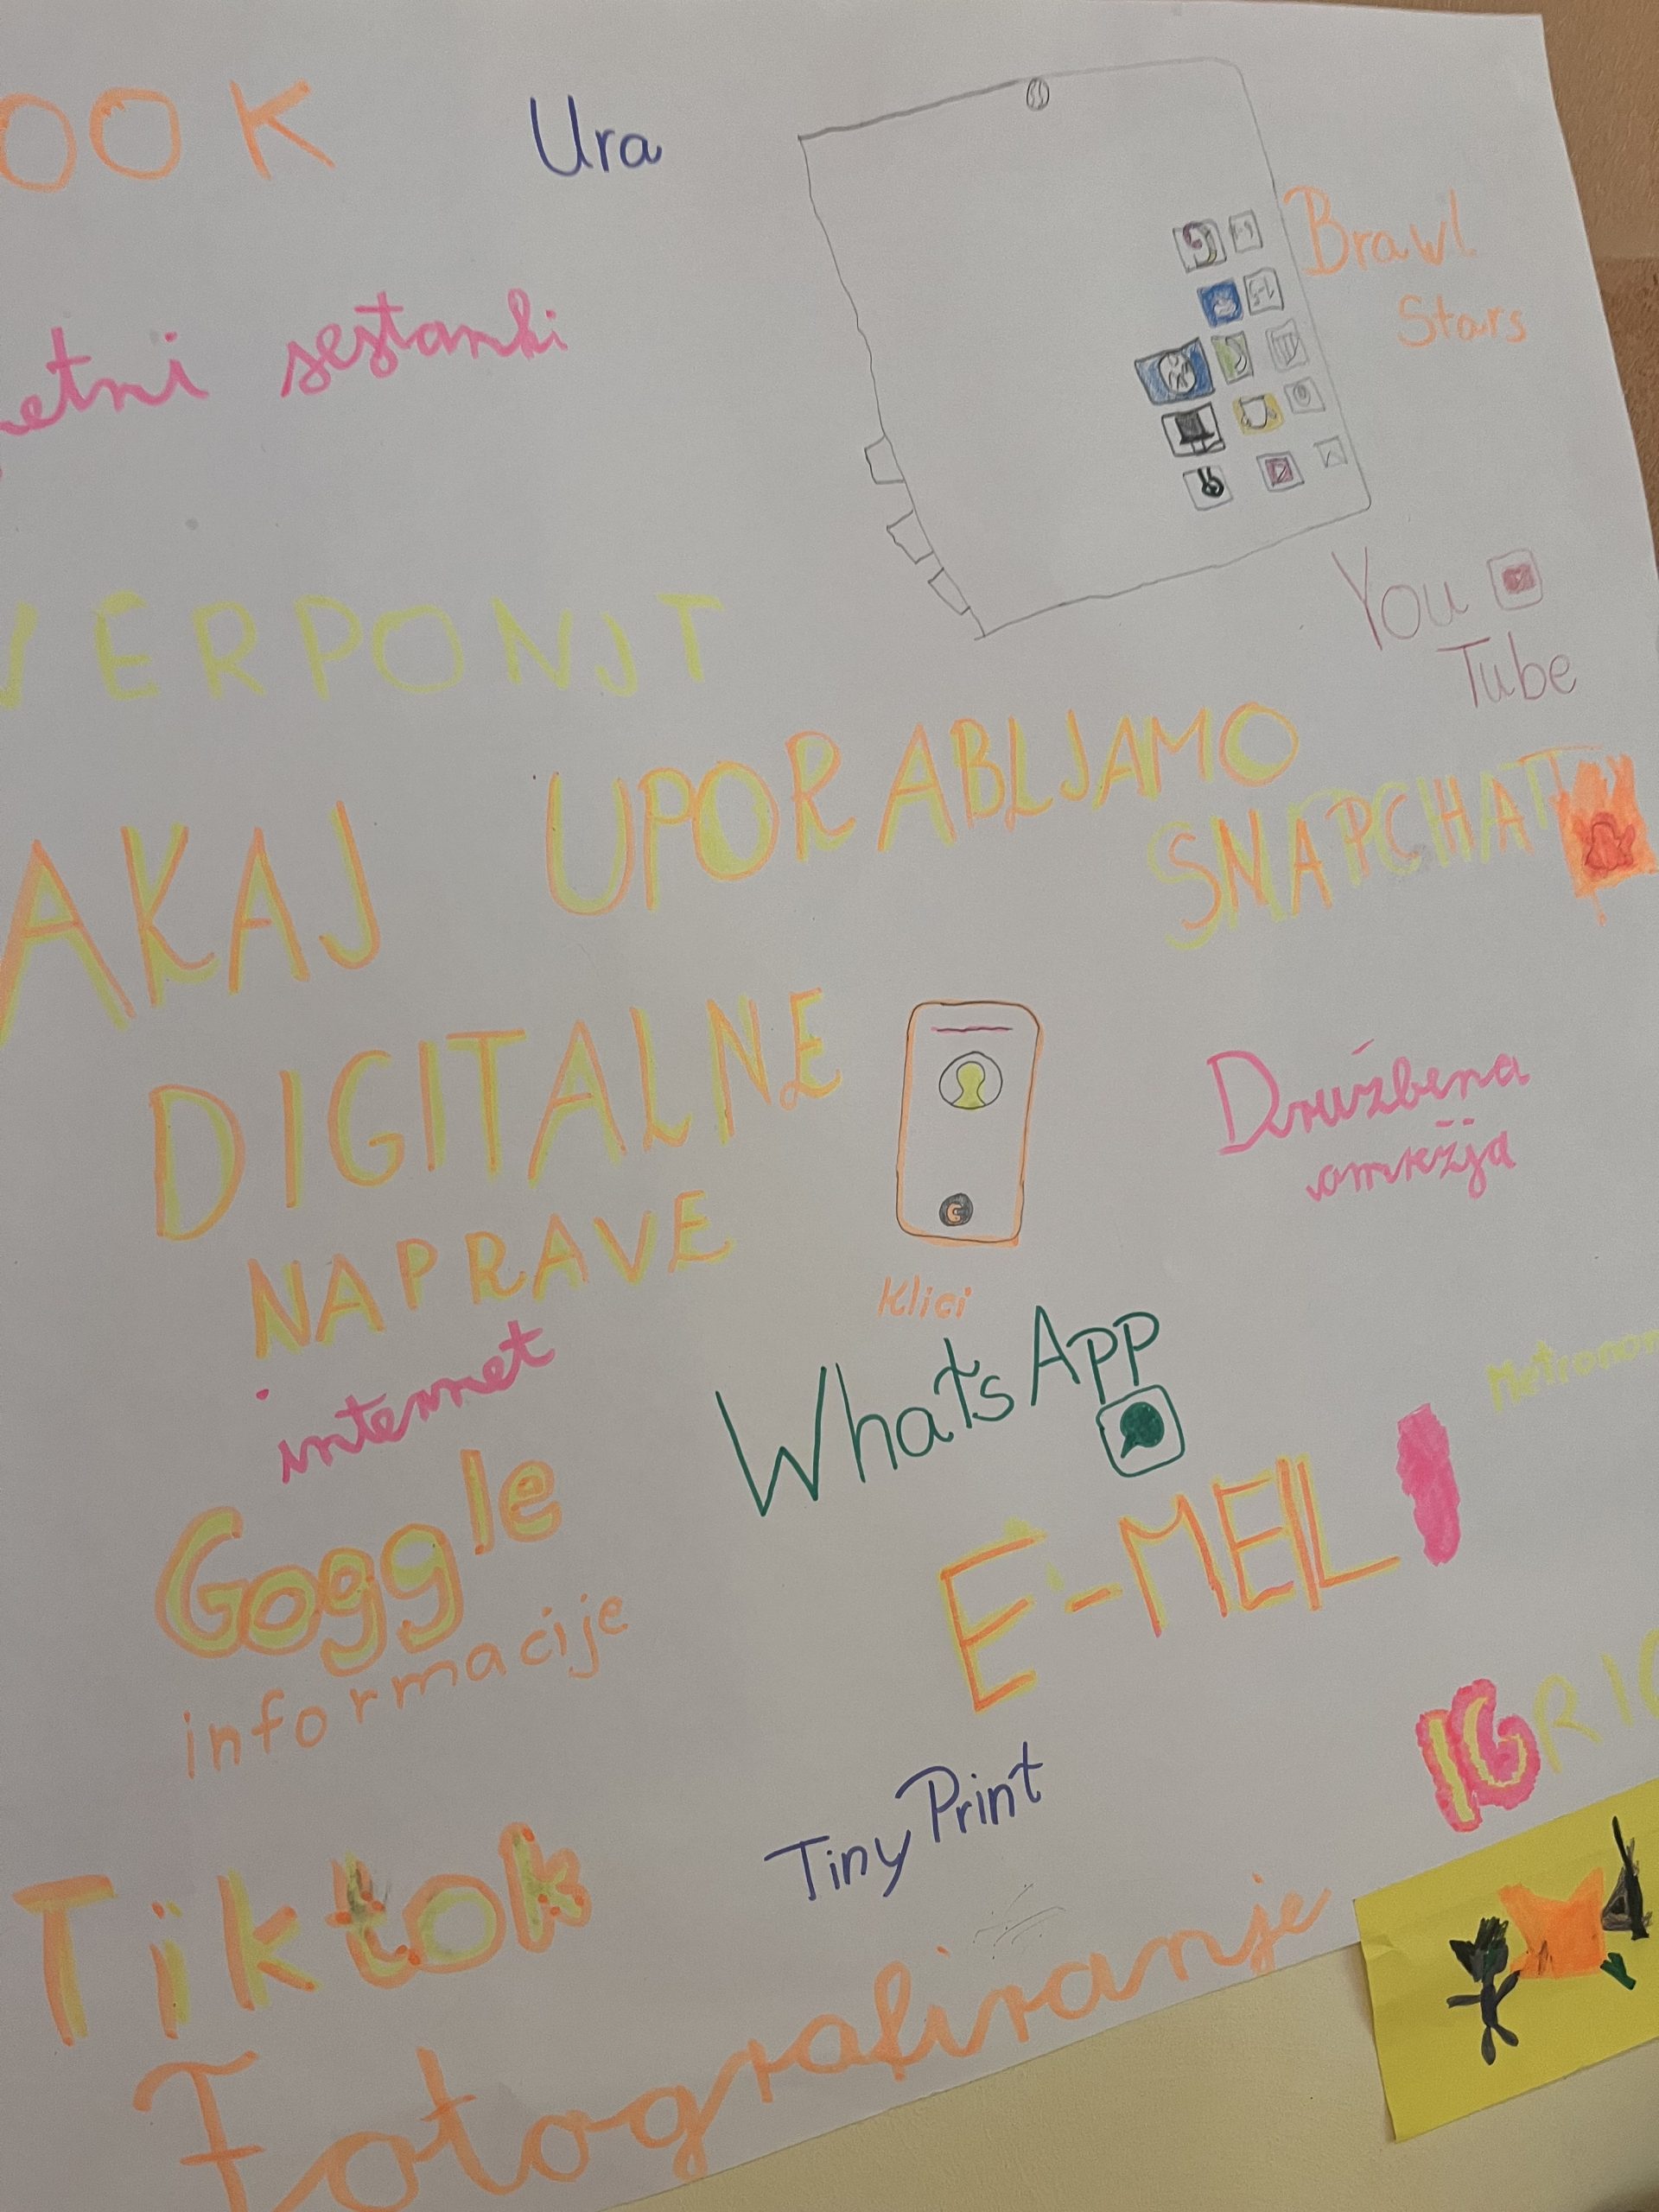 OOK
Ura
Brawl
Stars
etni sestanki
VERPONJT
You
Tube
AKAJ UPORABLJAMO
SNAPCHAT
DIGITALNE
NAPRAVE
Družbena
omrežja
Klici
internet
WhatsApp
Metronom
Goggle
informacije
E-MEIL
IGRIC
TinyPrint
Tiktok
Fotografiranje